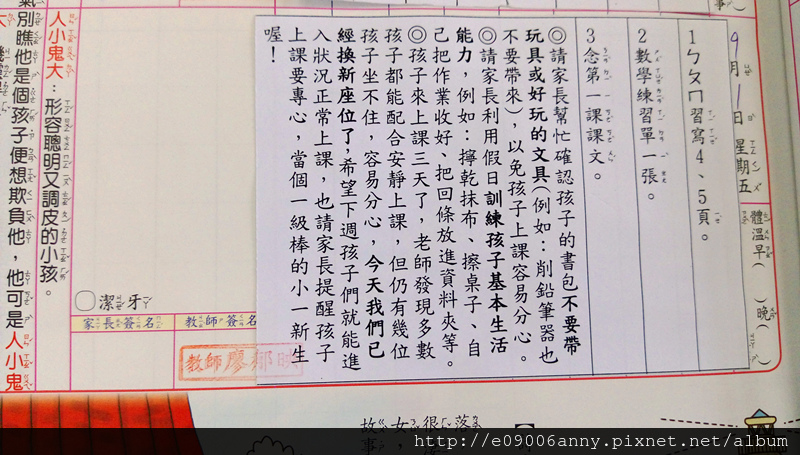 9月1日星期五
體溫早(　)晚(　)
1ㄅㄆㄇ習寫4、5頁。
2數學練習單一張。
3念第一課課文。
◎請家長幫忙確認孩子的書包不要帶
玩具或好玩的文具(例如：削鉛筆器也
不要帶來)，以免孩子上課容易分心。
◎請家長利用假日訓練孩子基本生活
能力，例如：擰乾抹布、擦桌子、自
己把作業收好、把回條放進資料夾等。
◎孩子來上課三天了，老師發現多數
孩子都能配合安靜上課，但仍有幾位
孩子坐不住，容易分心，今天我們已
經換新座位了，希望下週孩子們就能進
入狀況正常上課，也請家長提醒孩子
上課要專心，當個一級棒的小一新生
喔！
○潔牙
教師簽名
家長簽名
教師廖
人小鬼大：形容聰明又調皮的小孩。
別瞧他是個孩子便想欺負他，他可是人小鬼
落
很
女，
故事
http://e09006anny.pixnet.net/album